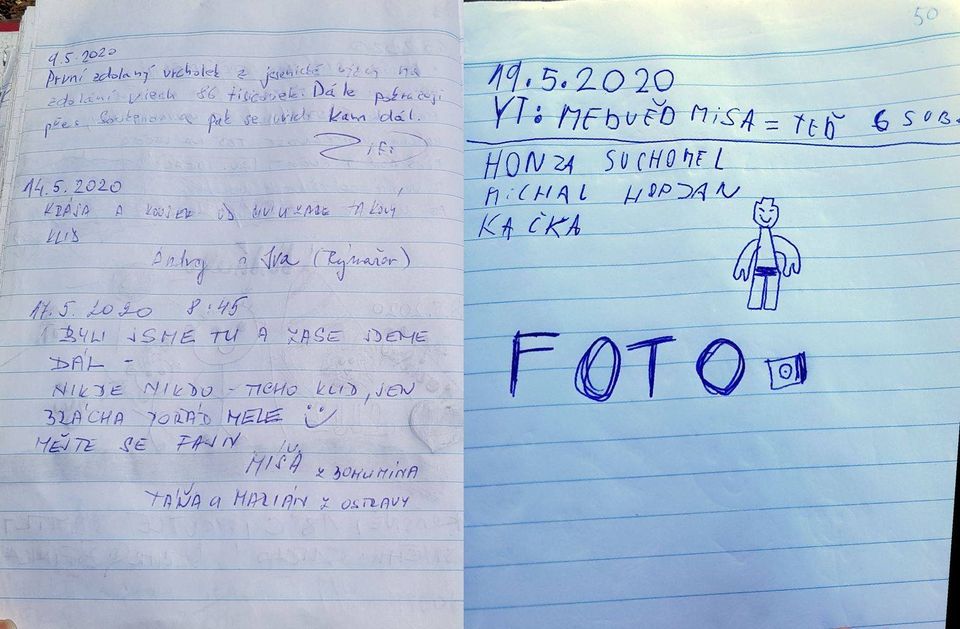 9.5.2020
První zdolaný vrcholek z jesenické výzvy na
zdolání všech 56 tisícovek. Dále pokračuji
přes a pak se uvidí kam dál.
14.5.2020
KRÁSA A KOUSEK OD CIVILIZACE TAKOVÝ
KLID
a Iva (Rýmařov)
17.5.2020 8:45
BYLI JSME TU A ZASE JDEME
DÁL -
NIKDE NIKDO - TICHO KLID, JEN
BRÁCHA POŘÁD MELE
MĚJTE SE FAJN
MIŠA z BOHUMÍNA
TÁŇA a MARIÁN z OSTRAVY
50
19.5.2020
YT: MEDVĚD MISA = TEĎ 6 SUB.
HONZA SUCHOMEL
MICHAL HORDAN
KAČKA
FOTO